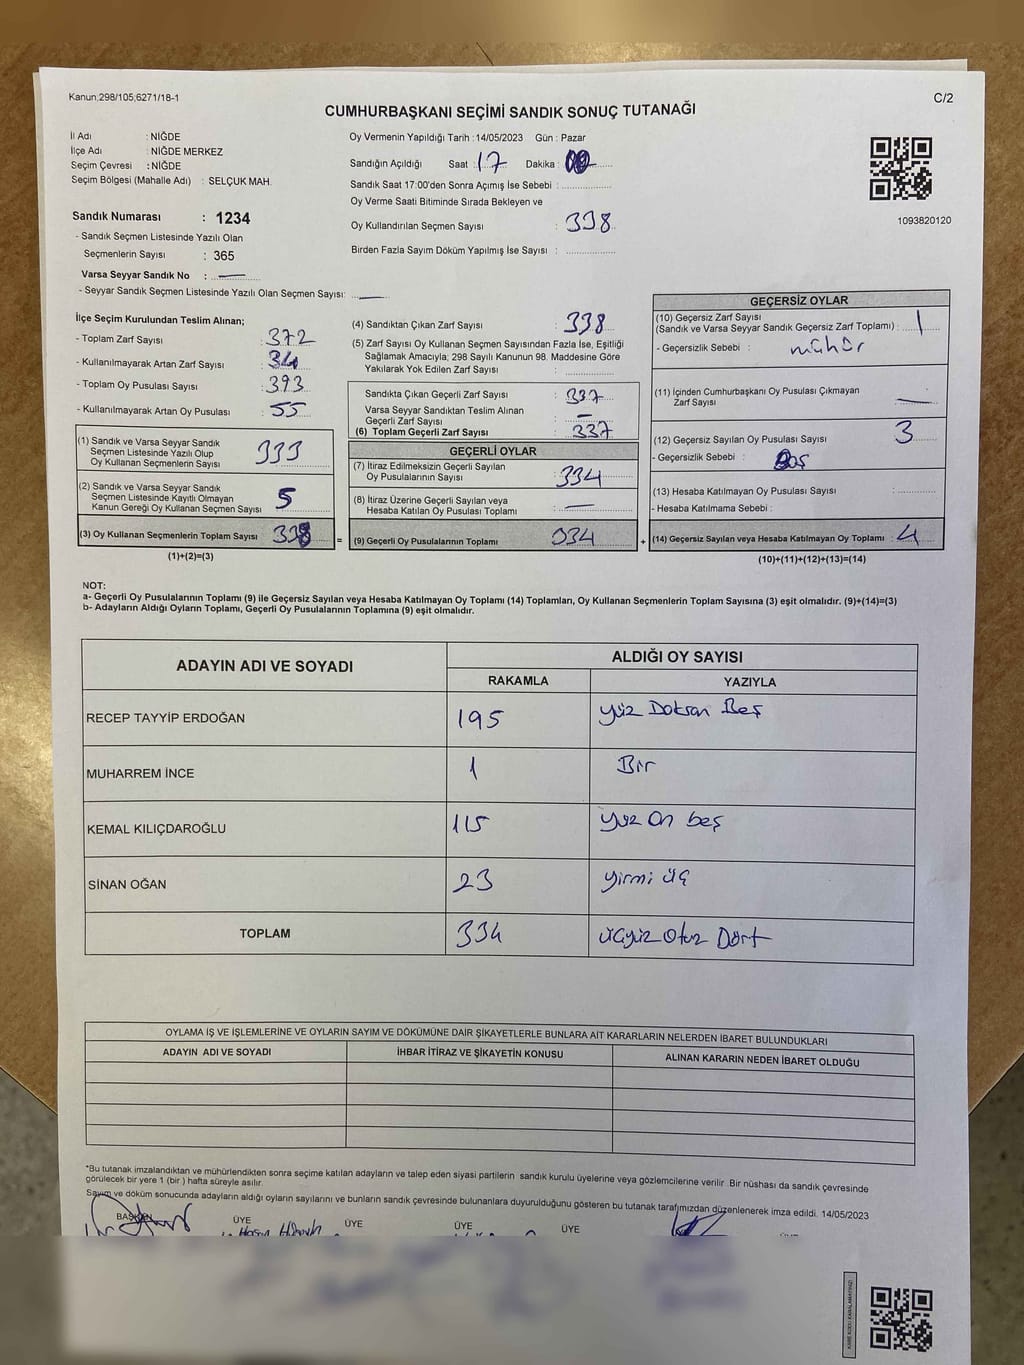 Kanun;298/105;6271/18-1
C/2
CUMHURBAŞKANI SEÇİMİ SANDIK SONUÇ TUTANAĞI
İl Adı : NİĞDE
İlçe Adı : NİĞDE MERKEZ
Seçim Çevresi : NİĞDE
Seçim Bölgesi (Mahalle Adı) : SELÇUK MAH.
Sandık Numarası : 1234
- Sandık Seçmen Listesinde Yazılı Olan
Seçmenlerin Sayısı : 365
Varsa Seyyar Sandık No :
- Seyyar Sandık Seçmen Listesinde Yazılı Olan Seçmen Sayısı:
Oy Vermenin Yapıldığı Tarih : 14/05/2023 Gün : Pazar
Sandığın Açıldığı Saat : 17 Dakika : 00
Sandık Saat 17:00'den Sonra Açımış İse Sebebi :
Oy Verme Saati Bitiminde Sırada Bekleyen ve
Oy Kullandırılan Seçmen Sayısı : 338
Birden Fazla Sayım Döküm Yapılmış İse Sayısı :
1093820120
İlçe Seçim Kurulundan Teslim Alınan;
- Toplam Zarf Sayısı : 372
- Kullanılmayarak Artan Zarf Sayısı : 34
- Toplam Oy Pusulası Sayısı : 393
- Kullanılmayarak Artan Oy Pusulası : 55
(1) Sandık ve Varsa Seyyar Sandık
Seçmen Listesinde Yazılı Olup
Oy Kullanan Seçmenlerin Sayısı 333
(2) Sandık ve Varsa Seyyar Sandık
Seçmen Listesinde Kayıtlı Olmayan
Kanun Gereği Oy Kullanan Seçmen Sayısı 5
(3) Oy Kullanan Seçmenlerin Toplam Sayısı 338
(1)+(2)=(3)
(4) Sandıktan Çıkan Zarf Sayısı : 338
(5) Zarf Sayısı Oy Kullanan Seçmen Sayısından Fazla İse, Eşitliği
Sağlamak Amacıyla; 298 Sayılı Kanunun 98. Maddesine Göre
Yakılarak Yok Edilen Zarf Sayısı :
Sandıkta Çıkan Geçerli Zarf Sayısı : 337
Varsa Seyyar Sandıktan Teslim Alınan
Geçerli Zarf Sayısı :
(6) Toplam Geçerli Zarf Sayısı : 337
GEÇERLİ OYLAR
(7) İtiraz Edilmeksizin Geçerli Sayılan
Oy Pusulalarının Sayısı : 334
(8) İtiraz Üzerine Geçerli Sayılan veya
Hesaba Katılan Oy Pusulası Toplamı :
= (9) Geçerli Oy Pusulalarının Toplamı : 334
GEÇERSİZ OYLAR
(10) Geçersiz Zarf Sayısı
(Sandık ve Varsa Seyyar Sandık Geçersiz Zarf Toplamı) : 1
- Geçersizlik Sebebi : mühür
(11) İçinden Cumhurbaşkanı Oy Pusulası Çıkmayan
Zarf Sayısı
(12) Geçersiz Sayılan Oy Pusulası Sayısı : 3
- Geçersizlik Sebebi : Boş
(13) Hesaba Katılmayan Oy Pusulası Sayısı :
- Hesaba Katılmama Sebebi :
+ (14) Geçersiz Sayılan veya Hesaba Katılmayan Oy Toplamı : 4
(10)+(11)+(12)+(13)=(14)
NOT:
a- Geçerli Oy Pusulalarının Toplamı (9) ile Geçersiz Sayılan veya Hesaba Katılmayan Oy Toplamı (14) Toplamları, Oy Kullanan Seçmenlerin Toplam Sayısına (3) eşit olmalıdır. (9)+(14)=(3)
b- Adayların Aldığı Oyların Toplamı, Geçerli Oy Pusulalarının Toplamına (9) eşit olmalıdır.
ADAYIN ADI VE SOYADI
ALDIĞI OY SAYISI
RAKAMLA YAZIYLA
RECEP TAYYİP ERDOĞAN 195 Yüz Doksan Beş
MUHARREM İNCE 1 Bir
KEMAL KILIÇDAROĞLU 115 Yüz On beş
SİNAN OĞAN 23 Yirmi üç
TOPLAM 334 üçyüz Otuz Dört
OYLAMA İŞ VE İŞLEMLERİNE VE OYLARIN SAYIM VE DÖKÜMÜNE DAİR ŞİKAYETLERLE BUNLARA AİT KARARLARIN NELERDEN İBARET BULUNDUKLARI
ADAYIN ADI VE SOYADI İHBAR İTİRAZ VE ŞİKAYETİN KONUSU ALINAN KARARIN NEDEN İBARET OLDUĞU
*Bu tutanak imzalandıktan ve mühürlendikten sonra seçime katılan adayların ve talep eden siyasi partilerin sandık kurulu üyelerine veya gözlemcilerine verilir. Bir nüshası da sandık çevresinde
görülecek bir yere 1 (bir ) hafta süreyle asılır.
Sayım ve döküm sonucunda adayların aldığı oyların sayılarını ve bunların sandık çevresinde bulunanlara duyurulduğunu gösteren bu tutanak tarafımızdan düzenlenerek imza edildi. 14/05/2023
BAŞKAN ÜYE ÜYE ÜYE ÜYE